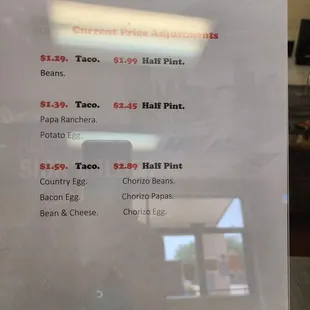 Current Price Adjustments
$1.29. Taco. $1.99 Half Pint.
Beans.
$1.39. Taco. $2.45 Half Pint.
Papa Ranchera.
Potato Egg.
$1.59. Taco. $2.89 Half Pint
Country Egg. Chorizo Beans.
Bacon Egg. Chorizo Papas.
Bean & Cheese. Chorizo Egg.